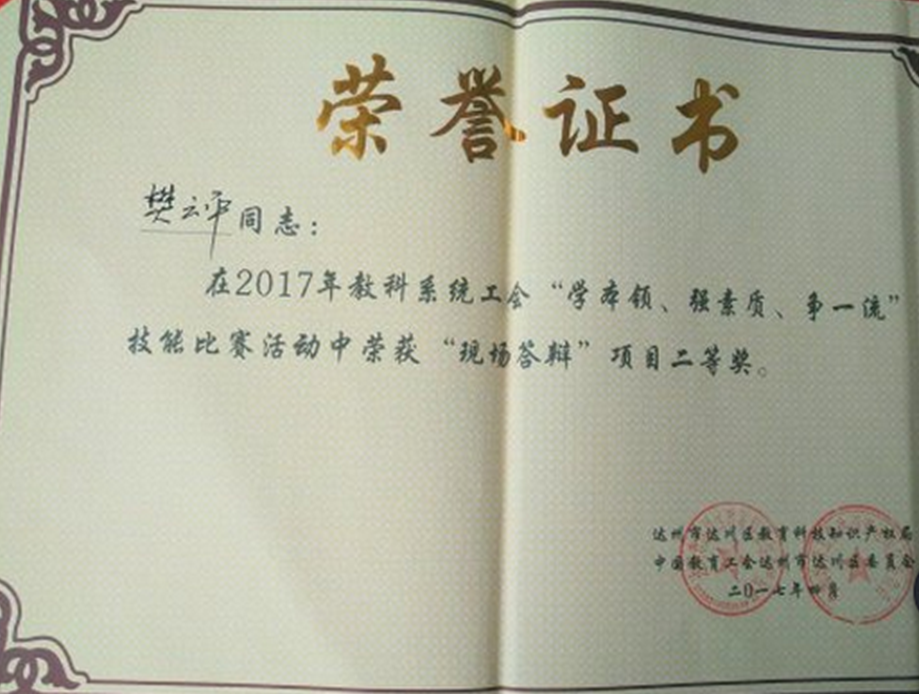 荣誉证书
樊云平同志：
在2017年教科系统工会“学本领、强素质、争一流”
技能比赛活动中荣获“现场答辩”项目二等奖。
达州市达川区教育科技知识产权局
中国教育工会达州市达川区委员会
二〇一七年四月